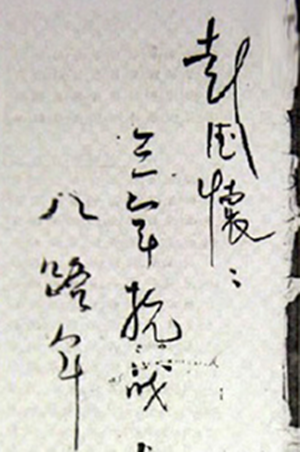 彭德懷:
三年抗战
八路军